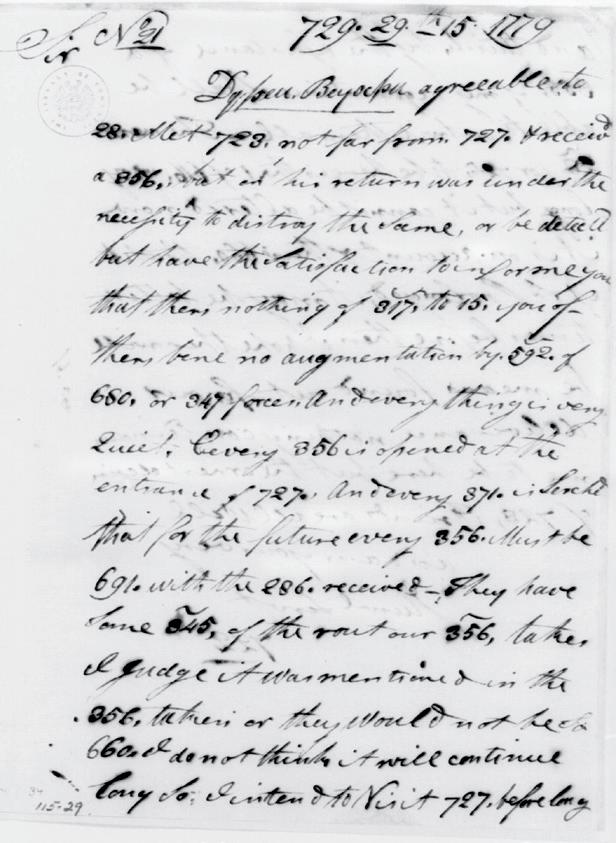 Sir. No. 21 729. 29th 15. 1779
Dqpeu. Beyocpu agreeable to
28. Met 723. not far from 727. & received
a 356, but on his return was under the
necessity to distroy the same, or be detected
but have the satisfaction to informe you
that thers nothing of 317. to 15. you of
thers bene no augmentation by. 592. of
680. or 347 forces. And every thing is very
Quiet. Every 356 is opened at the
entrance of 727. And every 371. is Serched
that for the future every 356. Must be
691. with the 286. received - They have
Some 345. of the rout our 356, takes
I judge it was mentioned in the
356. taken or they would not be so
660. I do not think it will continue
long so. I intend to Visit 727. before long
34
115-29